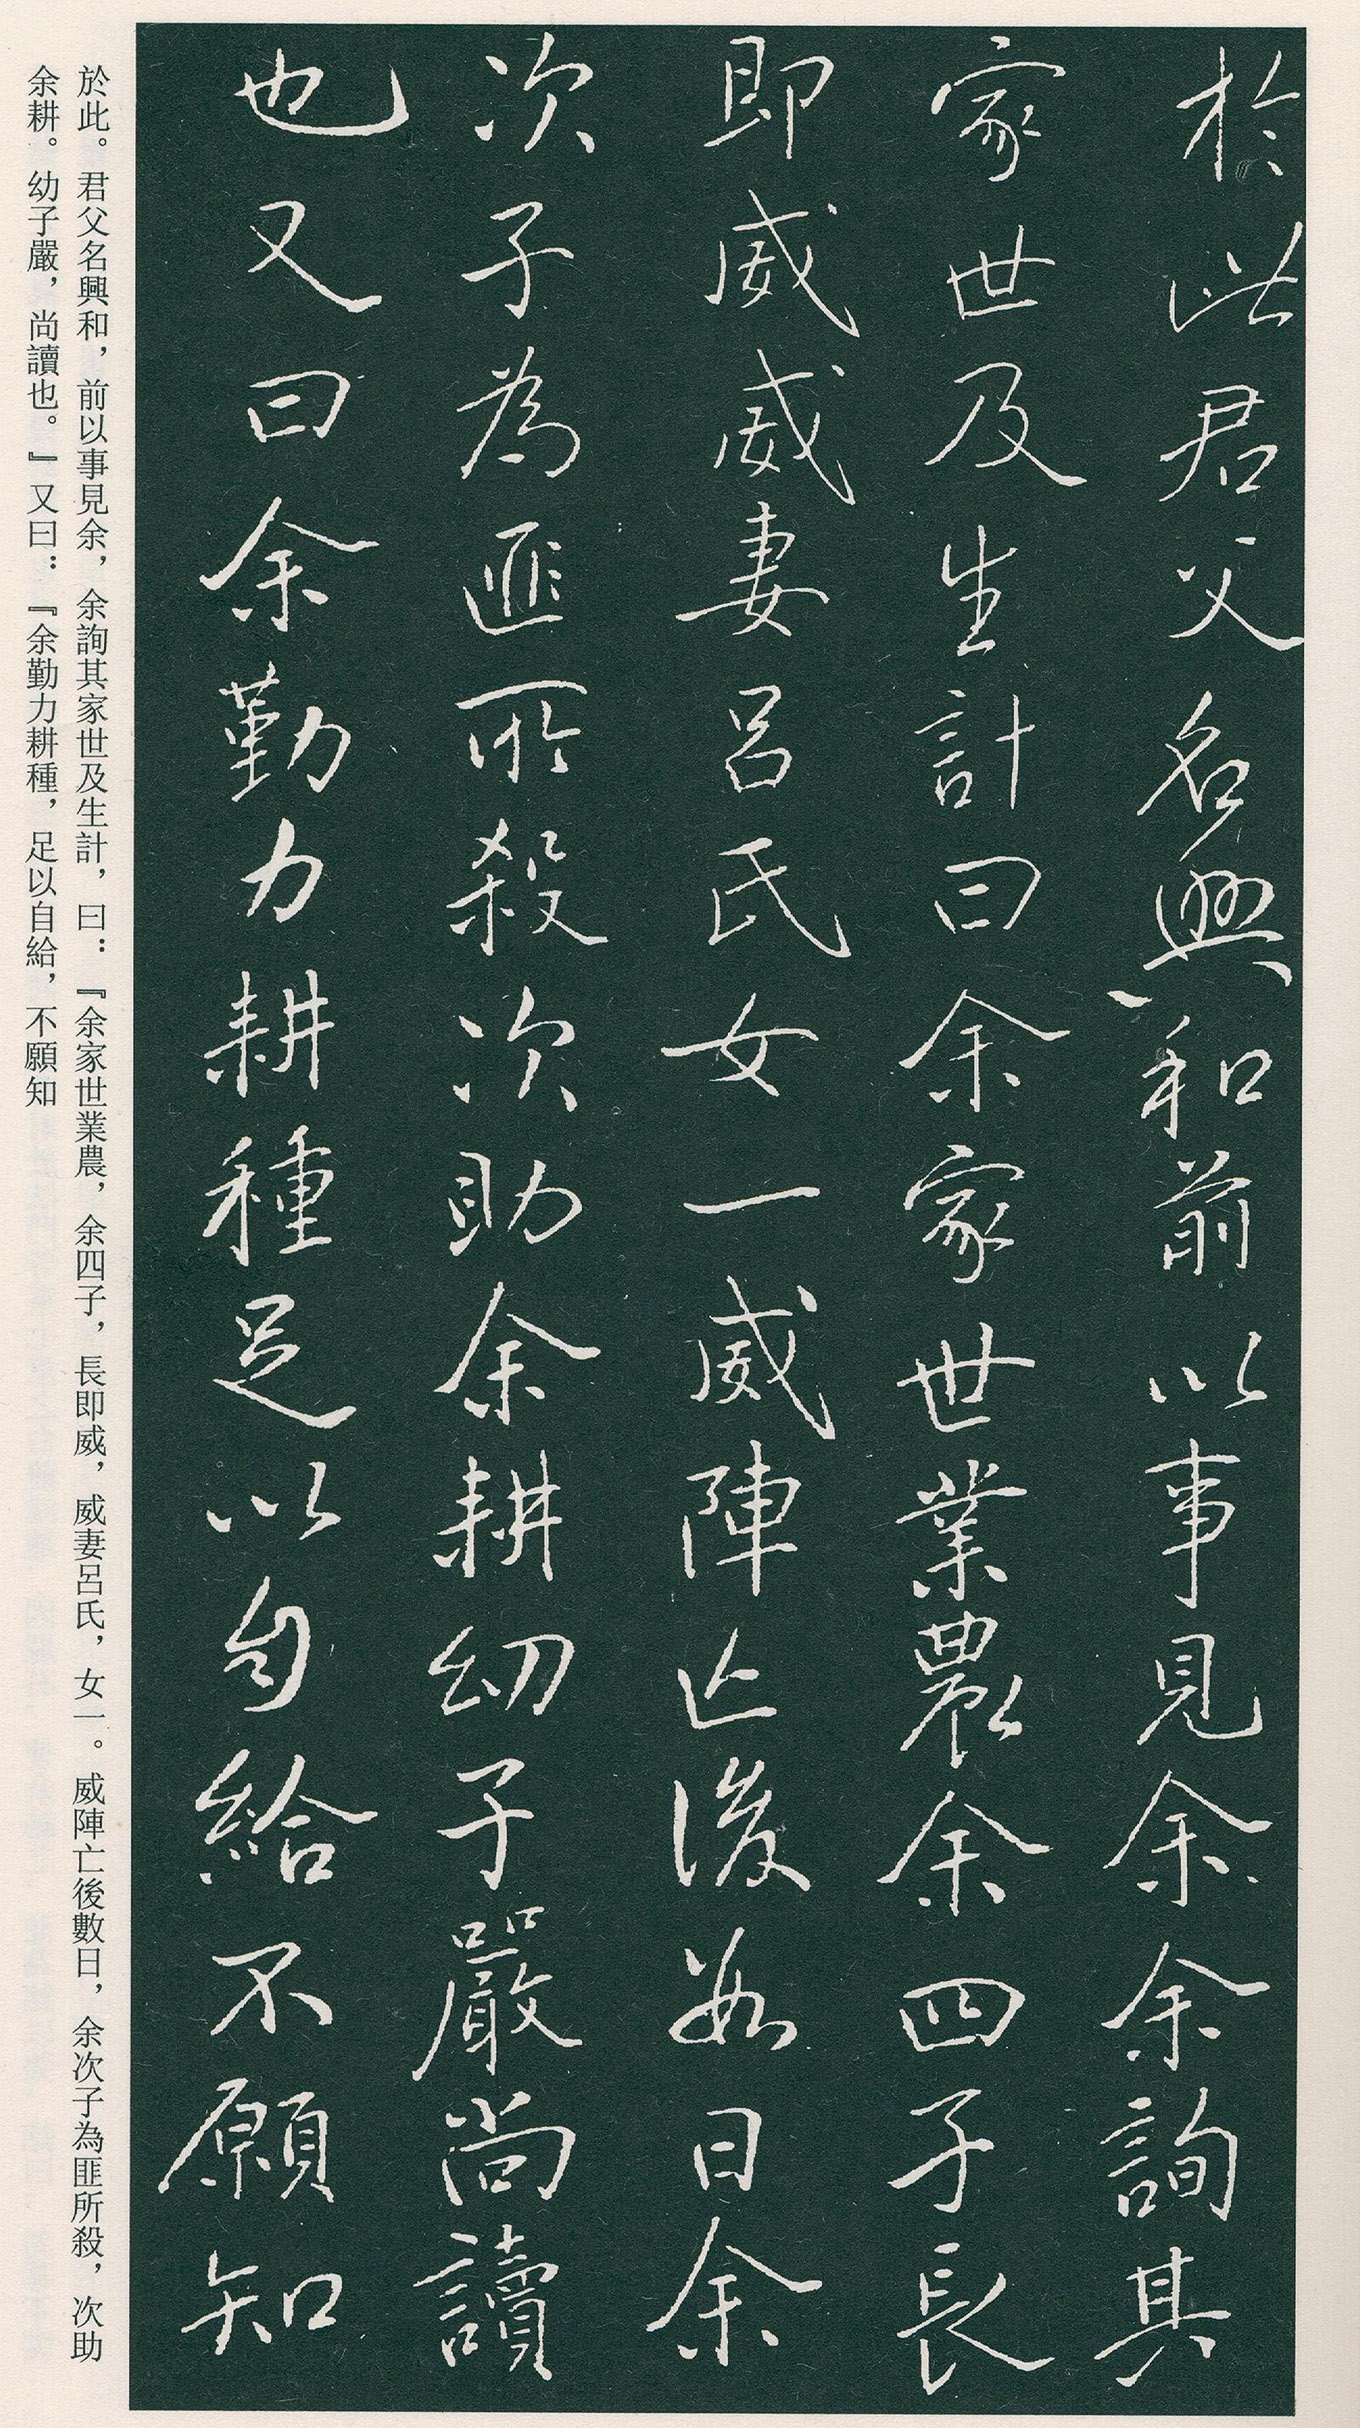 於此君父名興和前以事見余余詢其
家世及生計曰余家世業農余四子長
即威威妻呂氏女一威陣亡後數日余
次子為匪所殺次助余耕幼子嚴尚讀
也又曰余勤力耕種足以自給不願知
於此。君父名興和，前以事見余，余詢其家世及生計，曰：『余家世業農，余四子，長即威，威妻呂氏，女一。威陣亡後數日，余次子為匪所殺，次助
余耕。幼子嚴，尚讀也。』又曰：『余勤力耕種，足以自給，不願知